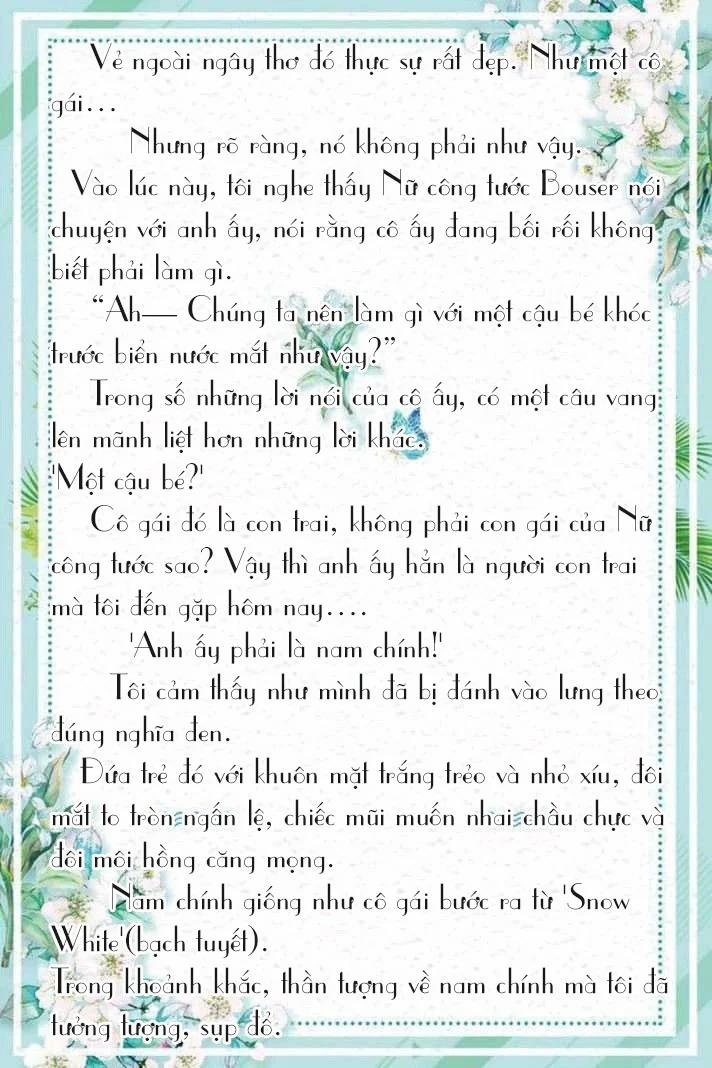 Vẻ ngoài ngây thơ đó thực sự rất đẹp. Như một cô
gái...
Nhưng rõ ràng, nó không phải như vậy.
Vào lúc này, tôi nghe thấy Nữ công tước Bouser nói
chuyện với anh ấy, nói rằng cô ấy đang bối rối không
biết phải làm gì.
“Ah— Chúng ta nên làm gì với một cậu bé khóc
trước biển nước mắt như vậy?”
Trong số những lời nói của cô ấy, có một câu vang
lên mãnh liệt hơn những lời khác.
'Một cậu bé?'
Cô gái đó là con trai, không phải con gái của Nữ
công tước sao? Vậy thì anh ấy hẳn là người con trai
mà tôi đến gặp hôm nay....
'Anh ấy phải là nam chính!'
Tôi cảm thấy như mình đã bị đánh vào lưng theo
đúng nghĩa đen.
Đứa trẻ đó với khuôn mặt trắng trẻo và nhỏ xíu, đôi
mắt to tròn ngấn lệ, chiếc mũi muốn nhai chầu chực và
đôi môi hồng căng mọng.
Nam chính giống như cô gái bước ra từ 'Snow
White'(bạch tuyết).
Trong khoảnh khắc, thần tượng về nam chính mà tôi đã
tưởng tượng, sụp đổ.